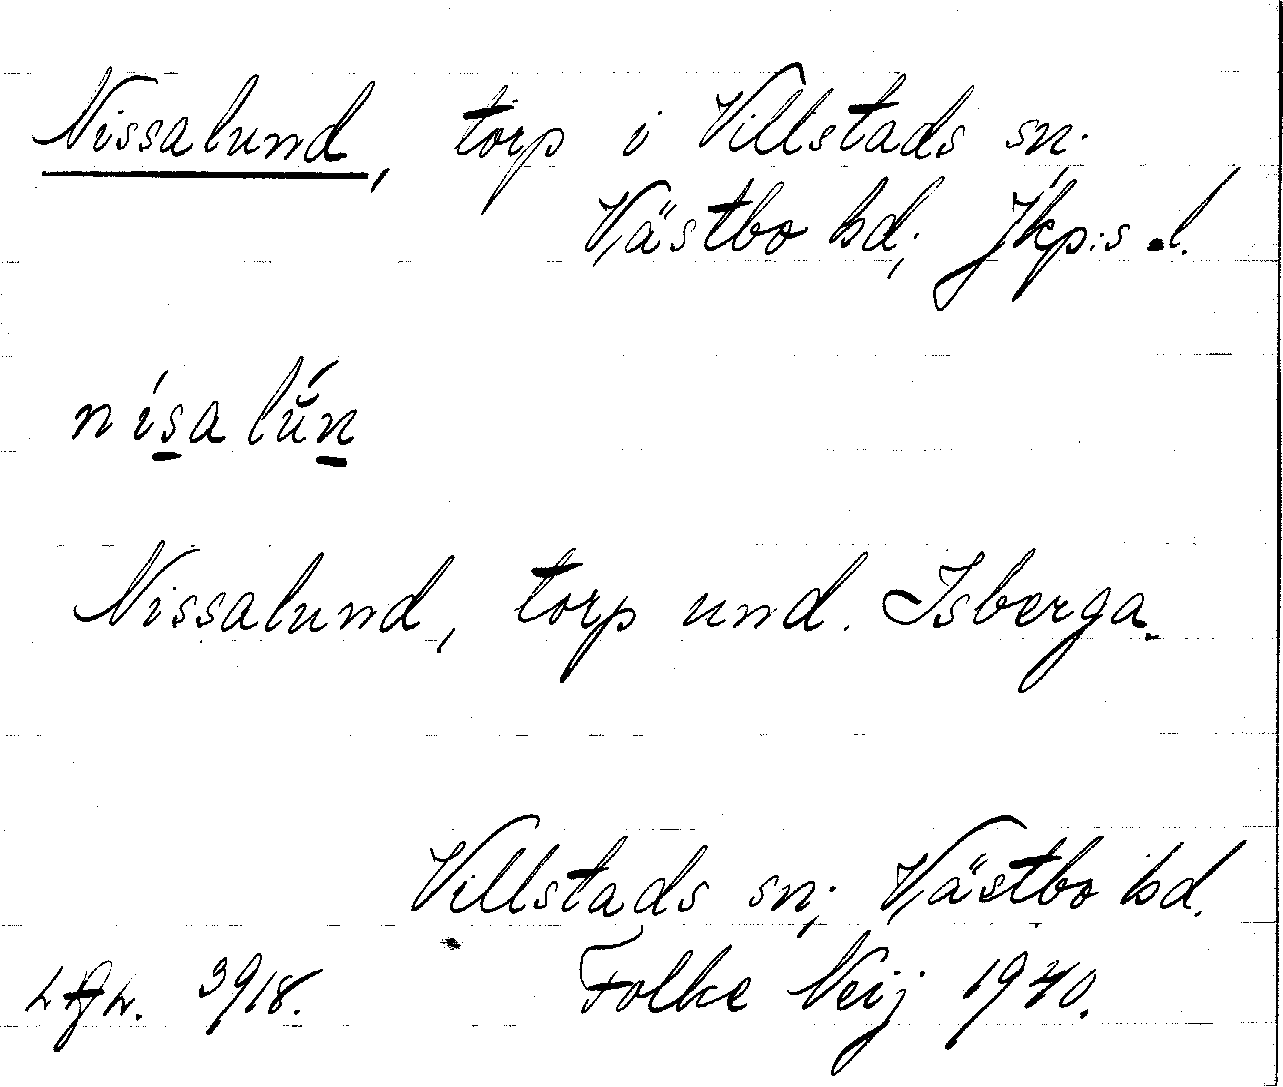 Nissalund, torp i Villstads sn;
Västbo hd; Jkp:s l.
nísalú̆n
Nissalund, torp und. Isberga.
Villstads sn; Västbo hd.
3918. Folke Neij 1940.